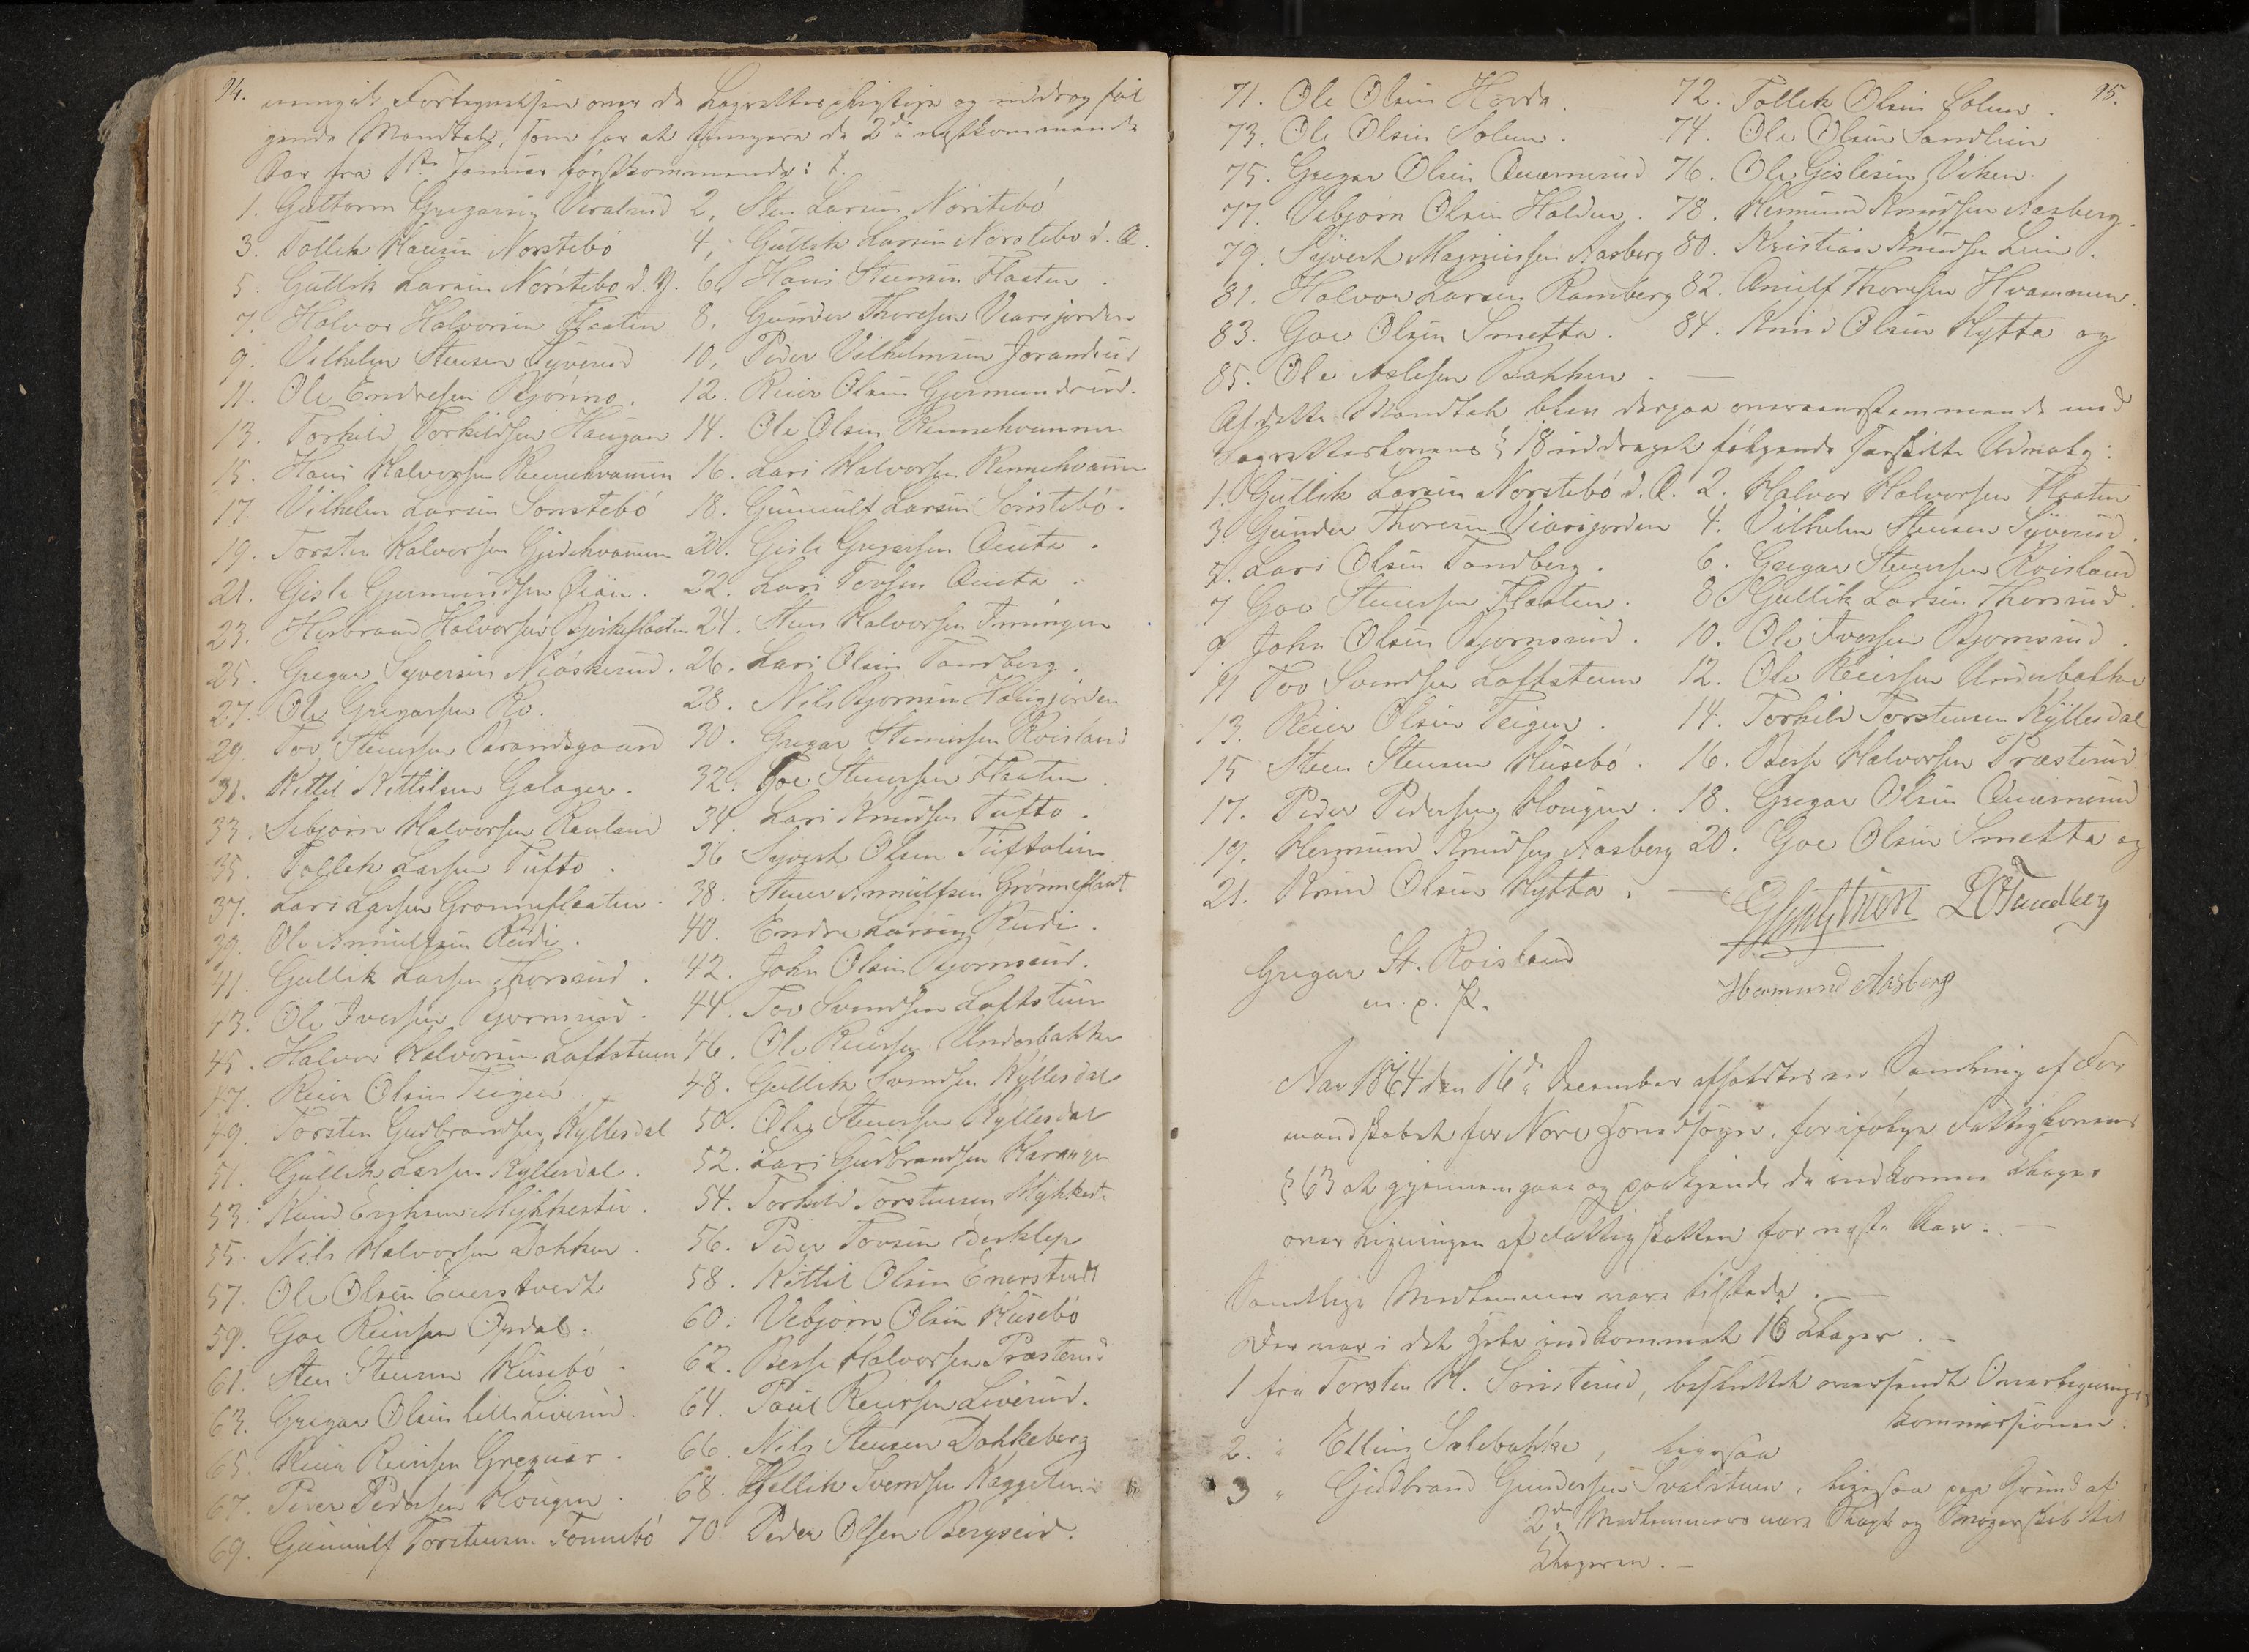 94.
Fortegnelsen over de Lagrettespligtige og inddrog føl
gende Mandtal, som har at fungere de 2de næstkommende
Aar fra 1ste Januar førstkommende: 1.
1. Guttorm Gregarsen Viralrud 2, Sten Larsen Nørstebø
3. Tollek Hansen Norstebø 4, Gullik Larsen Nørstebø d. Æ.
5. Gullik Larsen Nørstebø d. Y. 6, Hans Steensen Flaaten.
7. Halvor Halvorsen Flaaten 8, Gunder Thoresen Viersjorden
9. Vilhelm Stensen Syverud 10, Peder Vilhelmsen Jorandrud
11. Ole Endresen Bjønno. 12. Reier Olsen Gjermundrud.
13. Torkild Torkildsen Haugan 14. Ole Olsen Rennehvammen
15. Hans Halvorsen Rennehvammen 16. Lars Halvorsen Rennehvammen
17. Vilhelm Larsen Sønstebø 18. Gunnulf Larsen Sønstebø.
19. Torsten Halvorsen Gjedehvammen 20. Gisle Gregarsen Qvita.
21. Gisle Gjermundsen Øian. 22. Lars Tovsen Qvita.
23. Herbrand Halvorsen Bjerkeflaaten 24. Sten Halvorsen
25. Gregar Syversen Mjøskerud. 26. Lars Olsen Tandberg.
27. Ole Gregarsen Ro. 28. Nils Bjørnsen Haugjorden
29. Tov Steensen Brandsgaard 30. Gregar Steensen Roisland
31. Kittil Kittilsen Galager. 32. Goe Steensen Flaaten.
33. Sebjørn Halvorsen Rauland 34. Lars Knudsen Tufto.
35. Tollek Larsen Tufto. 36 Syvert Olsen Tuftolin
37. Lars Larsen Grønneflaaten. 38. Steen Arnulfsen Grønneflaat
39. Ole Arnulfsen Rudi. 40. Endre Larsen Rudi.
41. Gullik Larsen Thorsrud. 42. John Olsen Bjørnsrud.
43. Ole Iversen Bjørnsrud. 44. Tov Svendsen Loftstuen
45. Halvor Halvorsen Loftstuen 46. Ole Reiersen Underbakke
47. Reier Olsen Teigen. 48. Gullik Svendsen Kyllesdal
49. Torsten Gudbrandsen Kyllesdal 50. Ole Steensen Kyllesdal
51. Gullik Larsen Kyllesdal. 52. Lars Gudbrandsen
53. Knud Eriksen Mykkestu. 54. Torkild Torstensen Mykkest.
55. Nils Halvorsen Dokken. 56. Peder Tovsen
57. Ole Olsen Enerstvedt 58. Kittil Olsen Enerstvedt
59. Goe Reiersen Opdal. 60. Vebjørn Olsen Husebø
61. Sten Steensen Husebø. 62. Berse Halvorsen Præsterud
63. Gregar Olsen lille Liverud. 64. Paul Reiersen Liverud.
65. Reier Reiersen Greguar. 66. Nils Stensen Dokkeberg
67. Peder Pedersen Hougen. 68. Tjellik Svendsen
69. Gunnulf Torstensen Tonnebø 70. Peder Olsen Bergseid.
95.
71. Ole Olsen Hovde. 72. Tollek Olsen Solum.
73. Ole Olsen Solum. 74. Ole Olsen Sandlien
75. Gregar Olsen Qværnerud 76. Ole Gislesen Viken.
77. Vebjørn Olsen Halden. 78. Hermund Knudsen Aasberg.
79. Syvert Magnussen Aasberg 80. Kristian Knudsen Lien.
81. Halvor Larsen Ramberg 82. Arnulf Thoresen Hvammen.
83. Goe Olsen Smetta. 84. Knud Olsen Hytta og
85. Ole Aslesen Bakken. —
Af dette Mandtal blev derpaa overeensstemmende med
Lagrettelovens § 18 inddraget følgende særskilte Udvalg:
1. Gullik Larsen Nørstebø d. Æ. 2. Halvor Halvorsen Flaaten
3. Gunder Thoresen Viersjorden 4. Vilhelm Stensen Syverud.
5. Lars Olsen Tandberg. 6. Gregar Steensen Roisland
7 Goe Steensen Flaaten. 8. Gullik Larsen Thorsrud.
9. John Olsen Bjørnsrud. 10. Ole Iversen Bjørnsrud.
11 Tov Svendsen Loftstuen 12. Ole Reiersen Underbakke
13. Reier Olsen Teigen. 14. Torkild Torstensen Kyllesdal
15 Steen Steensen Husebø. 16. Berse Halvorsen Præsterud
17. Peder Pedersen Hougen. 18. Gregar Olsen Qværnerud
19. Hermund Knudsen Aasberg 20. Goe Olsen Smetta og
21. Knud Olsen Hytta. —
L O Tandberg
Gregar St. Roisland
m. p. P.
Hermund Aasberg
Aar 1864 den 16de December afholdtes en Samling af For
mandskabet for Nore Sogn, for ifølge Fattiglovens
§ 63 at gjennemgaae og paakjende de indkomne Klager
over Ligningen af Fattigskatten for næste Aar. —
Samtlige Medlemmer vare tilstede. —
Der var i det Hele indkommet 16 Klager. —
1 fra Torsten H. Sønsterud, besluttet oversendt Overlignings
kommissionen.
2. " Elling Solebakke, ligesaa
3 " Gudbrand Gundersen Svalstuen, ligesaa paa Grund af
2de Medlemmers nære Slægt og Svogerskab til
Klageren. —